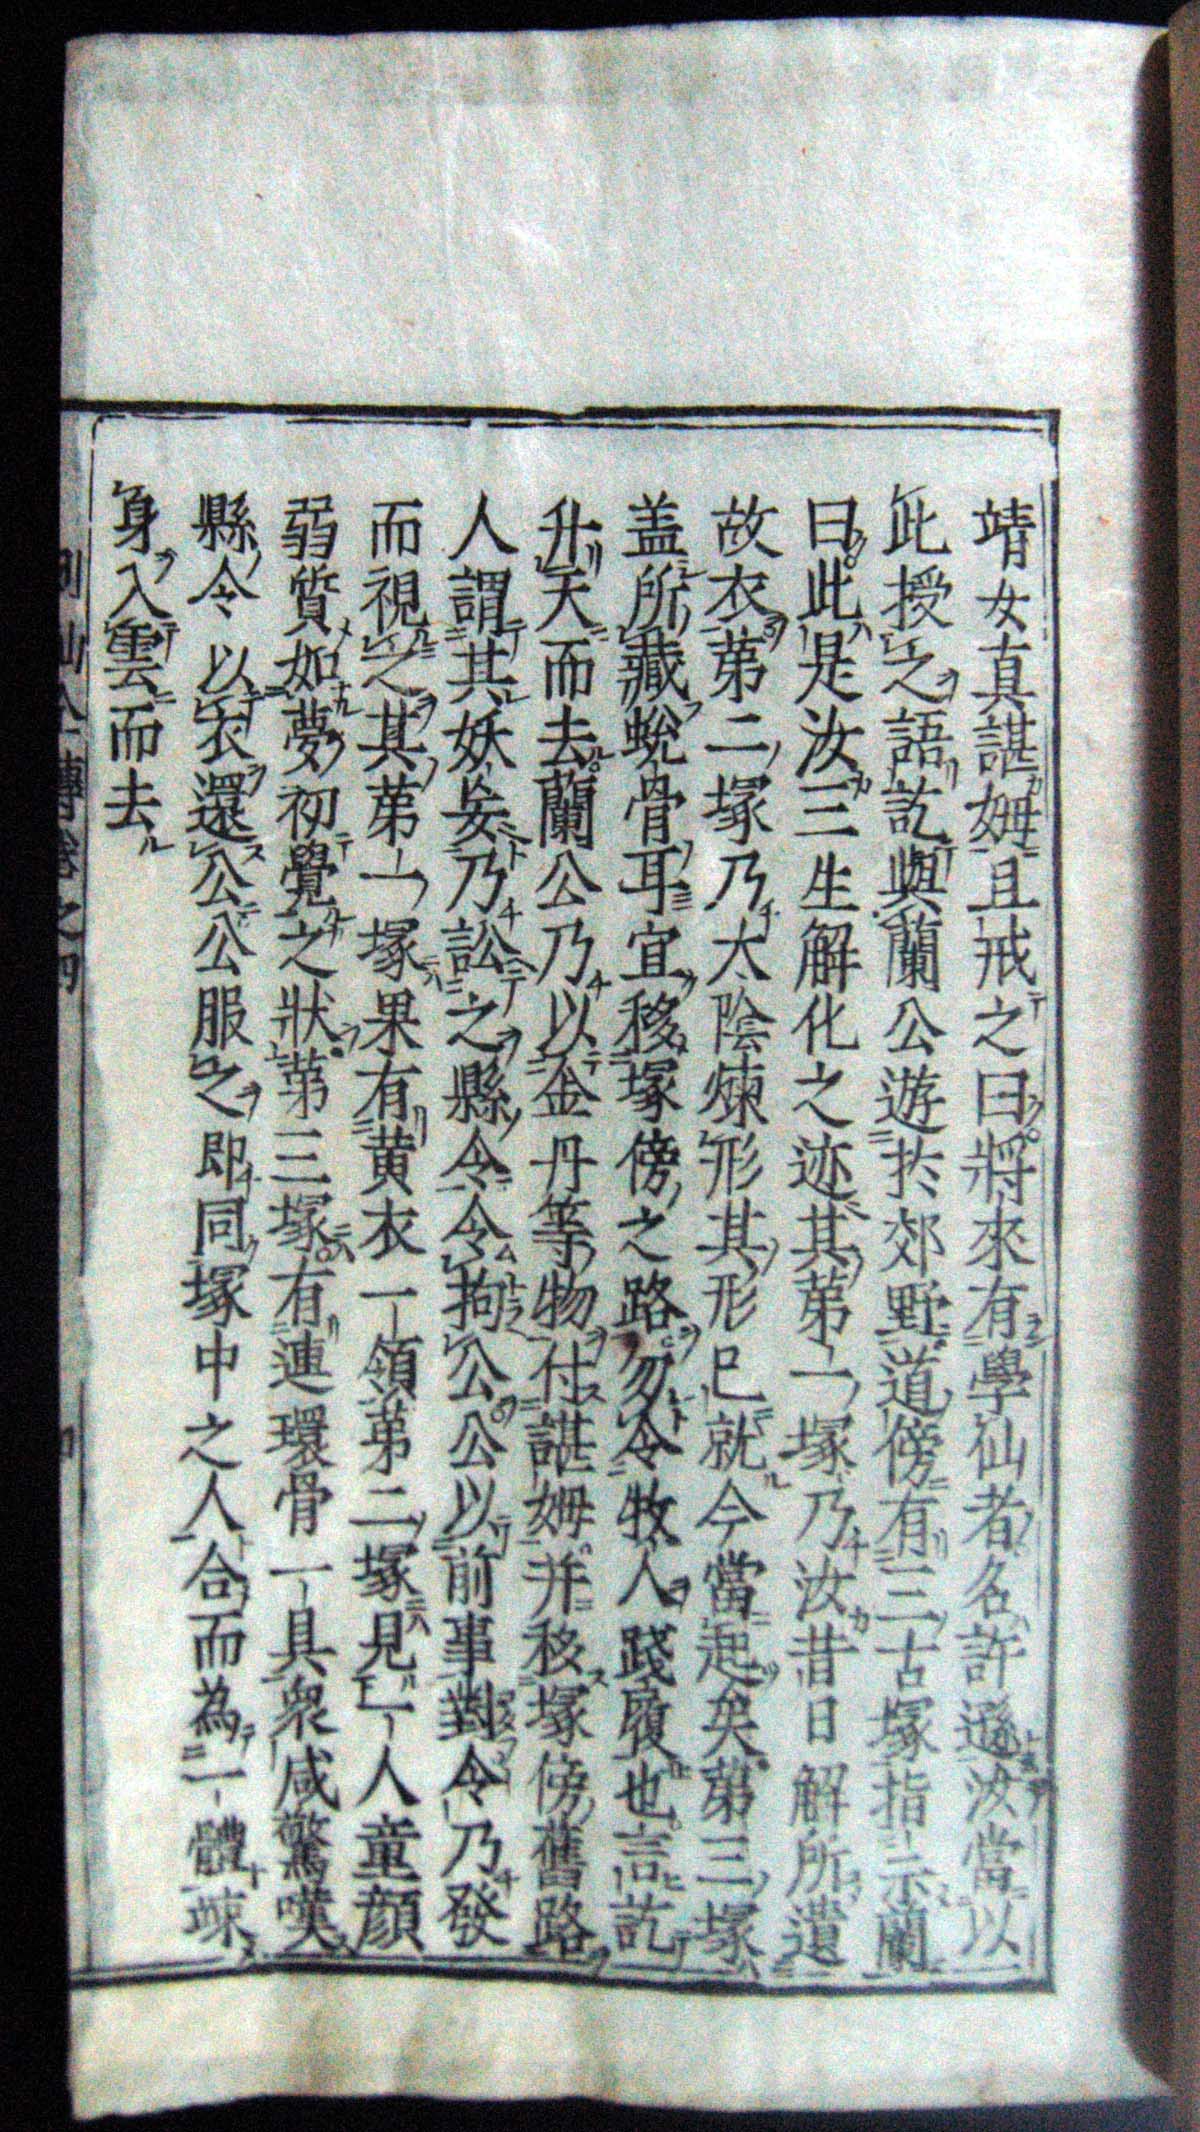 靖女真諶姆且戒之曰將來有學仙者名許遜汝當以
此授之語訖與蘭公遊於郊野道傍有三古塚指示蘭
曰此是汝三生解化之迹其第一塚乃汝昔日解所遺
故衣第二塚乃太陰煉形其形已就今當起矣第三塚
盖所藏蛻骨耳宜移塚傍之路勿令牧人踐履也言訖
升天而去蘭公乃以金丹等物付諶姆并移塚傍舊路
人謂其妖妄乃訟之縣令令拘公公以前事對令乃發
而視之其第一塚果有黄衣一領第二塚見一人童顔
弱質如夢初覺之狀第三塚有連環骨一具衆咸驚嘆
縣令以衣還公公服之即同塚中之人合而為一體竦
身入雲而去
列仙全傳卷之四